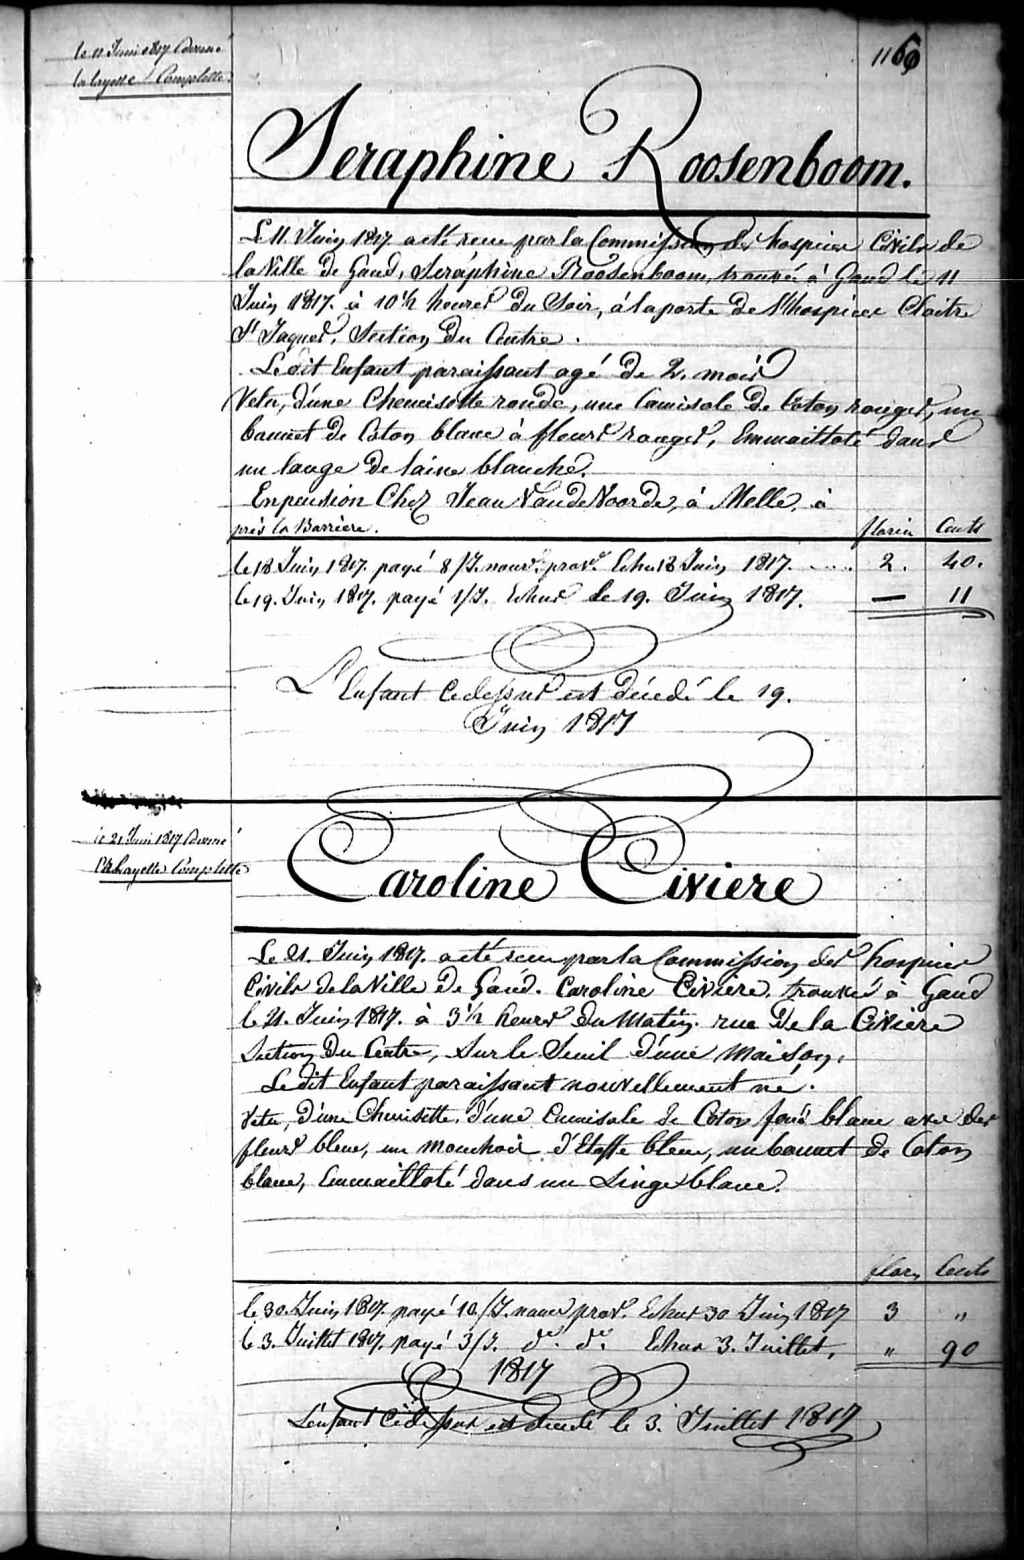 1166
le 11 Juin 1817 Donné
la layette Complette
Seraphine Roosenboom.
Le 11. Juin 1817. a été recue par la Commission des hospices Civils de
la Ville de Gand, Seraphine Roosenboom, trouvé à Gand le 11
Juin 1817. à 10½ heures du Soir, à la porte de l'hospice Cloitre
St Jaques, Section du Centre.
Le dit Enfant paraissant agé de 2. mois
Vetu, d'une Chemisette ronde, une Camisole de Coton rouge, un
bonnet de Coton blanc à fleurs rouges, Emmailloté dans
un lange de laine blanche.
En pension Chez Jean Vande Voorde, à Melle, à
près la Barrière.
florin Cents
le 18 Juin 1817. payé 8/J. nour. prov. Echus 18 Juin 1817. .... 2. 40.
le 19. Juin 1817. payé 1/J. Echus le 19. Juin 1817. — 11
L'Enfant Cidessus est décedé le 19.
Juin 1817
le 21 Juin 1817 Donné
la layette Complette
Caroline Civiere
Le 21. Juin 1817. a été recue par la Commission des hospices
Civils de la Ville de Gand. Caroline Civiere. trouvé à Gand
le 21. Juin 1817. à 3½ heures du Matin. rue de la Civiere
Section du Centre, Sur le Seuil d'une Maison.
Le dit Enfant paraissant nouvellement né.
Vetu, d'une Chemisette, d'une Camisole de Coton fond blanc avec des
fleurs bleue, un mouchoir d'Etoffe bleue, un bonnet de Coton
blanc, Emmailloté dans un Linge blanc.
florin Cents
le 30. Juin 1817. payé 10/J. nour prov. Echus 30 Juin 1817 3 "
le 3. Juillet 1817. payé 3/J. do. do. Echus 3. Juillet, " 90
1817
L'enfant Cidessus est decedé le 3. Juillet 1817